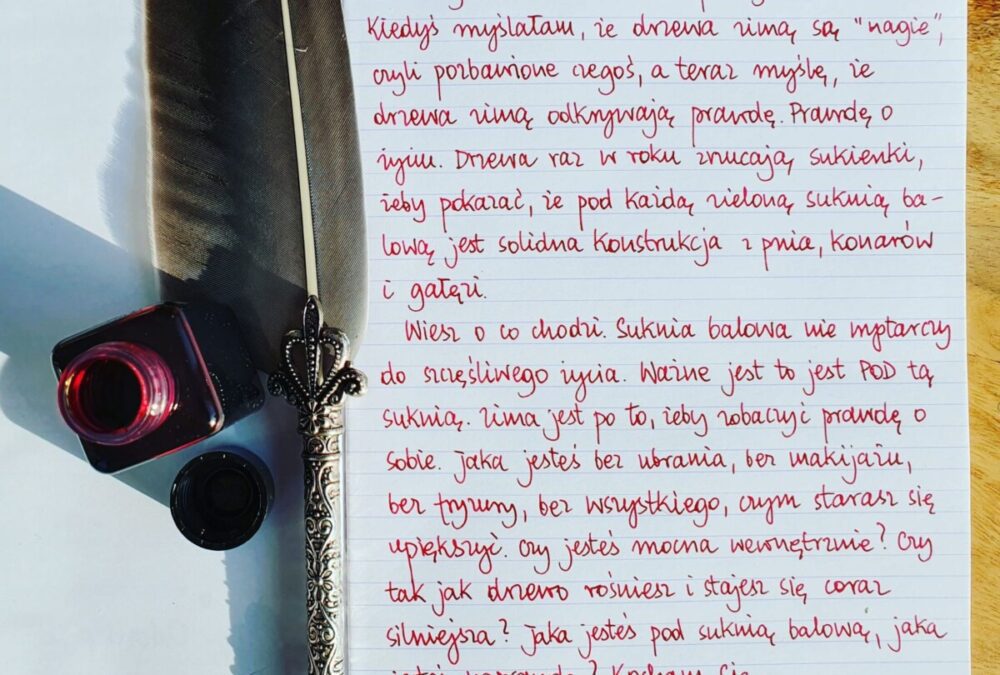 Kiedyś myślałam, że drzewa zimą są "nagie",
czyli pozbawione czegoś, a teraz myślę, że
drzewa zimą odkrywają prawdę. Prawdę o
życiu. Drzewa raz w roku zrzucają sukienki,
żeby pokazać, że pod każdą zieloną suknią ba-
lową jest solidna konstrukcja z pnia, konarów
i gałęzi.
Wiesz o co chodzi. Suknia balowa nie wystarczy
do szczęśliwego życia. Ważne jest to jest POD tą
suknią. Zima jest po to, żeby zobaczyć prawdę o
sobie. Jaka jesteś bez ubrania, bez makijażu,
bez fryzury, bez wszystkiego, czym starasz się
upiększyć. Czy jesteś mocna wewnętrznie? Czy
tak jak drzewo rośniesz i stajesz się coraz
silniejsza? Jaka jesteś pod suknią balową, jaka